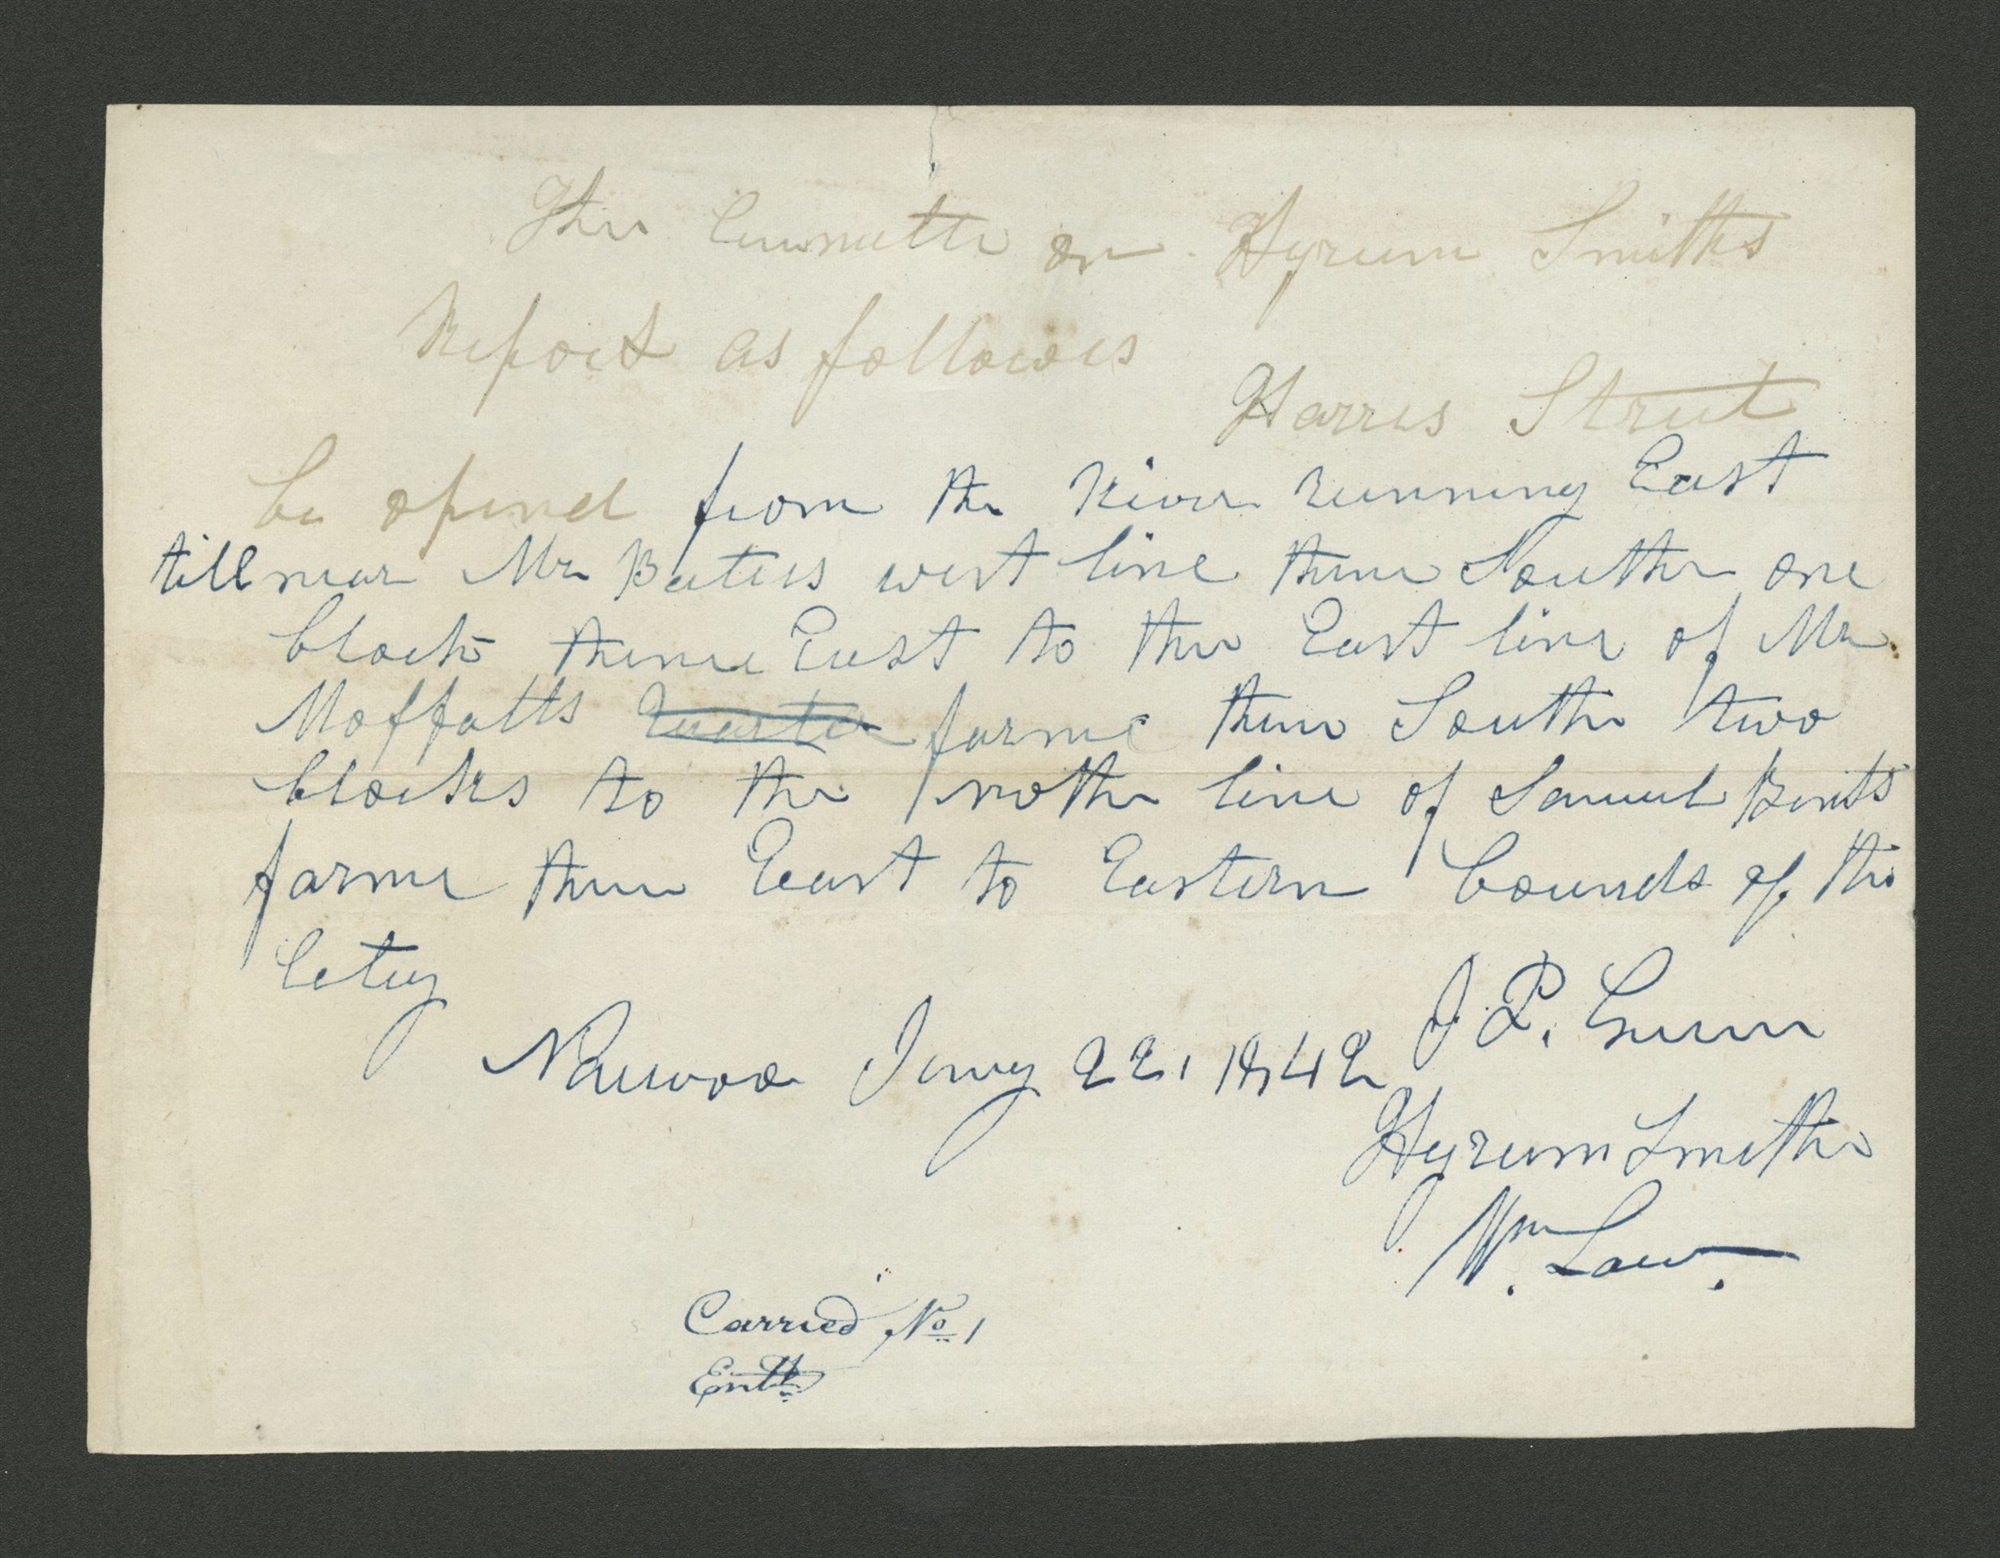 The Committe on Hyrum Smiths
Report as follows
Harris Street
be opend from the River running East
till near Mr Bateses west line thence South one
block thence East to the East line of Mr
Moffatts Quarter farme thence South two
blocks to the north line of Samuel Bents
farme thence East to Eastern bounds of the
City
J P. Green
Nauvoo Jany 22, 1842
Hyrum Smith
Wm. Law.
Carried No 1